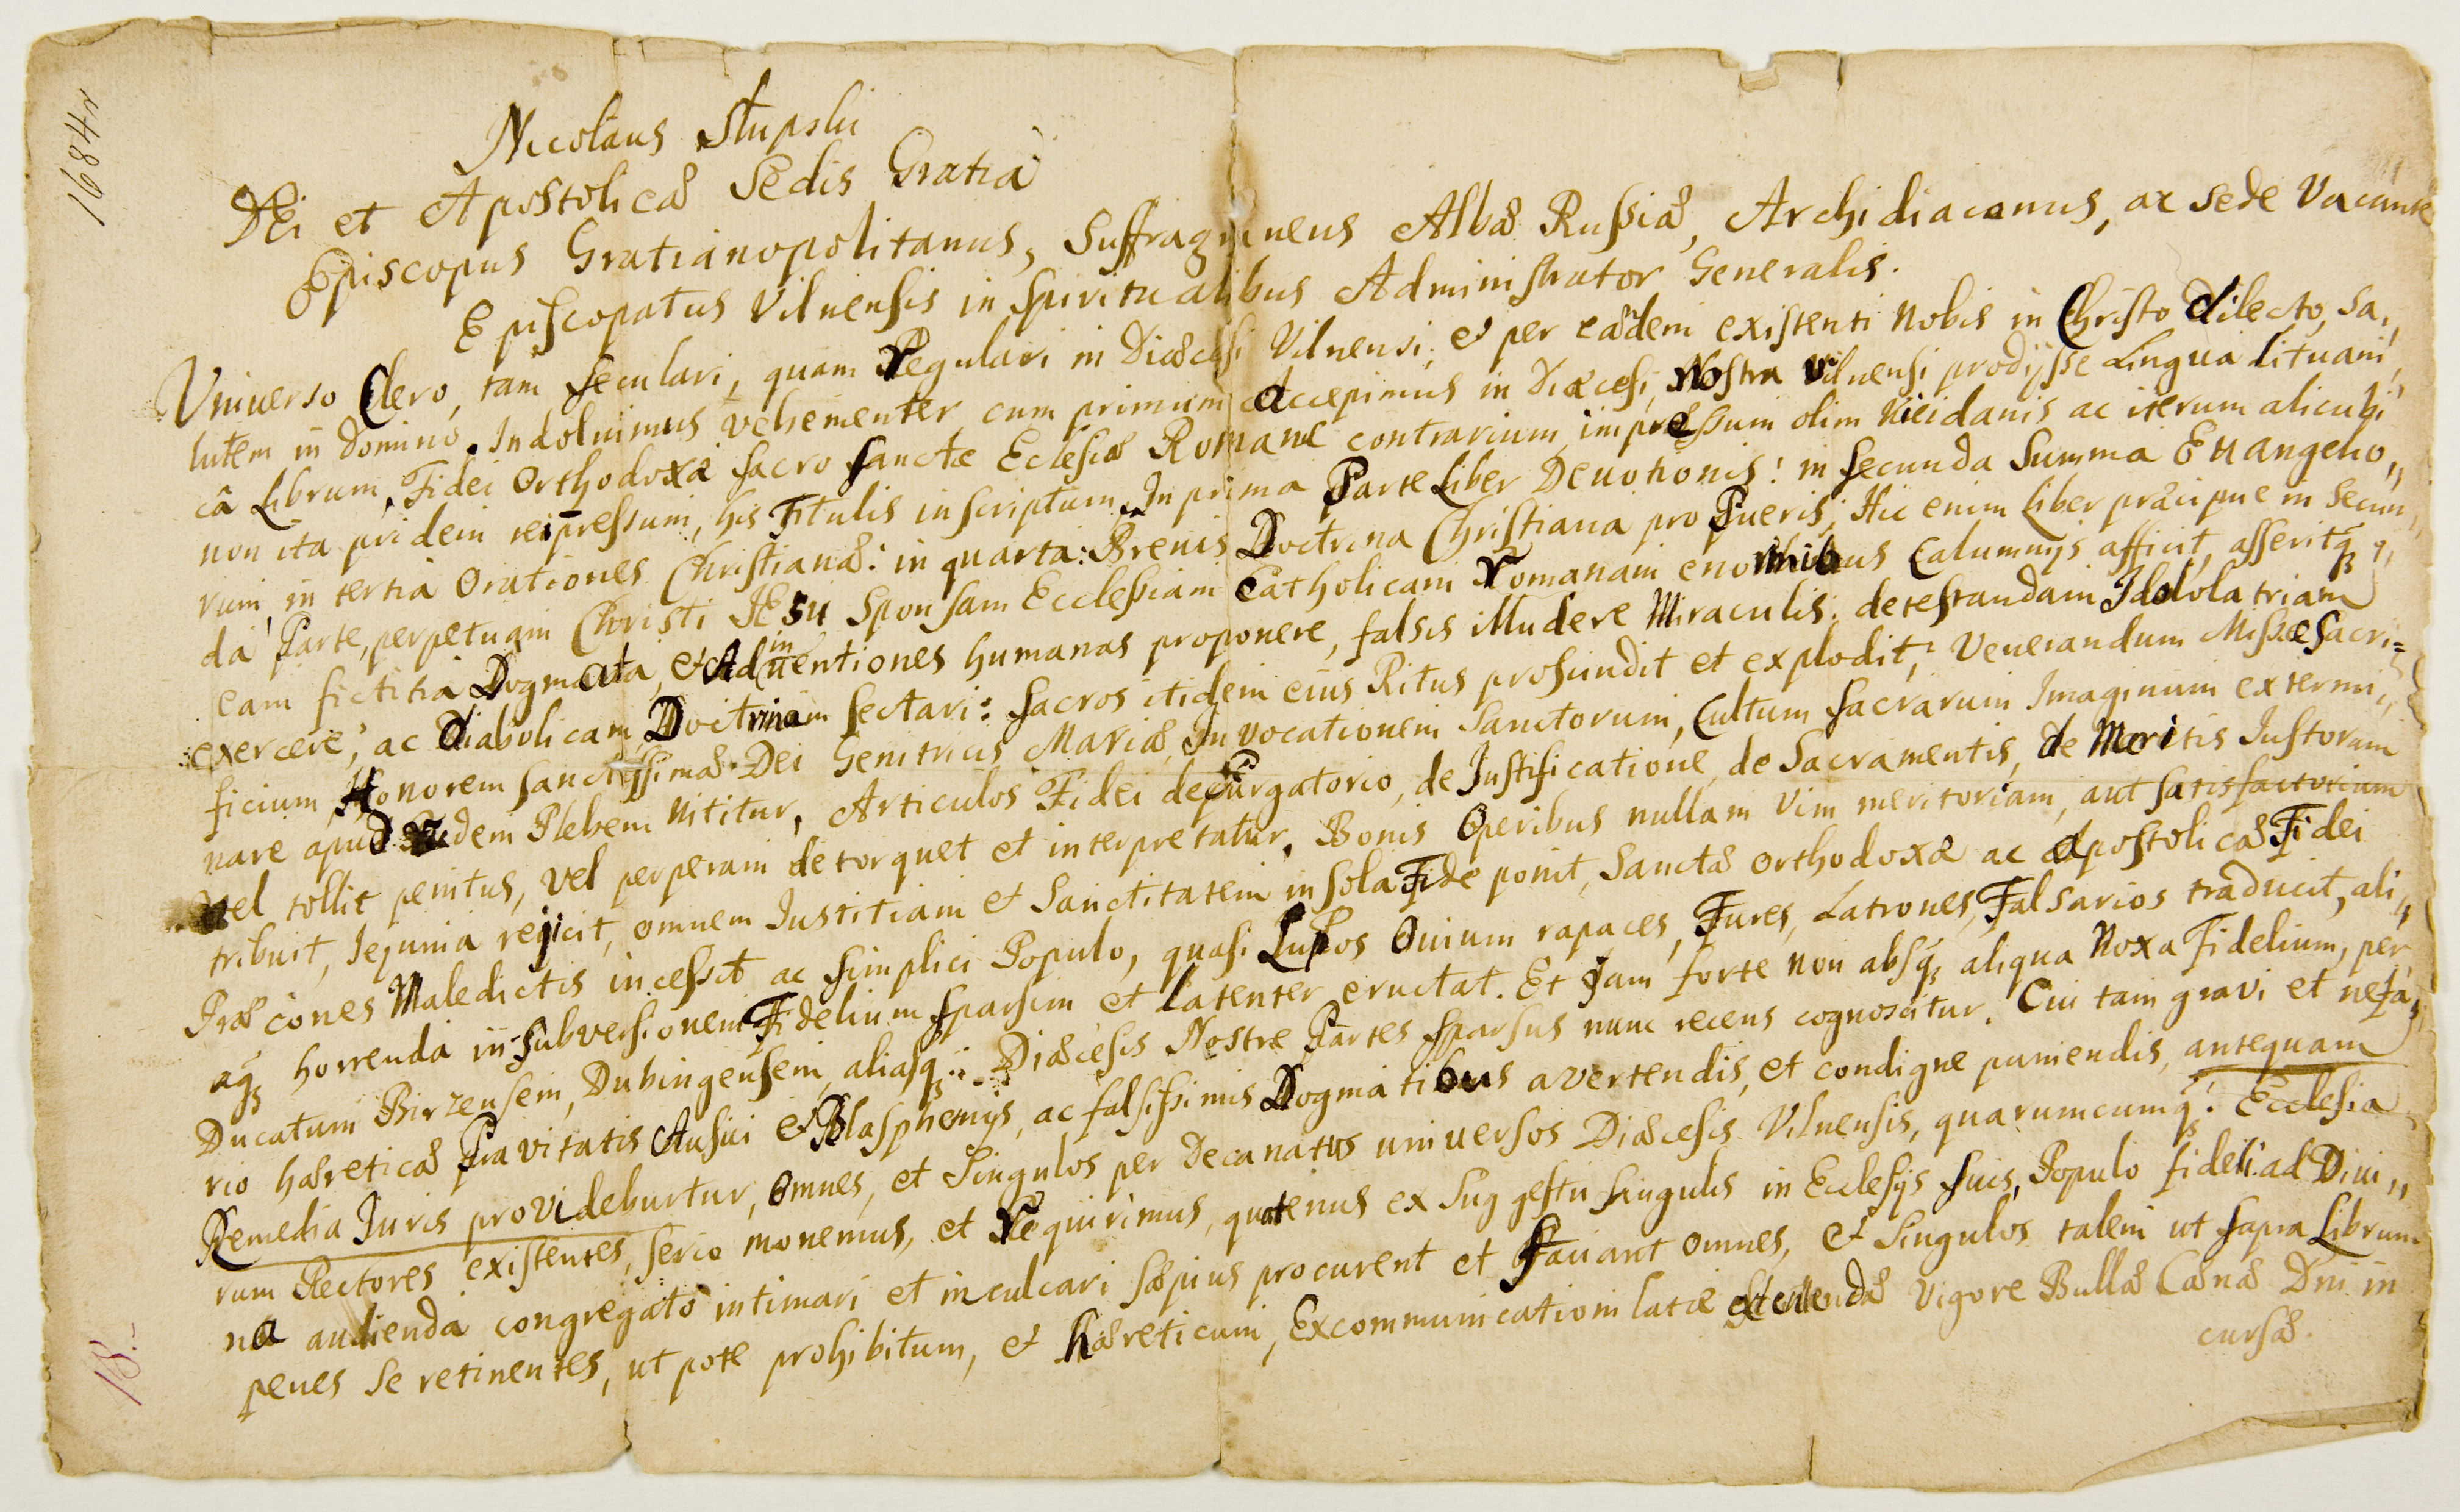 1684r
Nicolaus Słupski
DEi et Apostolicæ Sedis Gratia
Episcopus Gratianopolitanus, Suffraganeus Albæ Russiæ, Archidiaconus, ac Sede Vacante
Episcopatus Vilnensis in Spiritualibus Administrator Generalis.
Vniuerso Clero, tam Seculari, quam Regulari in Diæcesi Vilnensi, et per eadem existenti Nobis in Christo Dilecto, Sa„
lutem in Domino. Indoluimus vehementer cum primum Accepimus in Diæcesi Nostra Vilnensi prodijsse Lingua Lituani„
câ Librum, Fidei Orthodoxæ Sacro Sanctæ Eclesiæ Romanæ contrarium, impressum olim Kieidanis ac iterum alicubi
non ita pridem reipressum, his Titulis inscriptum. In prima Parte Liber Deuotionis: in Secunda Summa Euangelio„
rum, in tertia Orationes Christianæ: in quarta: Breuis Doctrina Christiana pro Pueris. Hic enim Liber præcipue in Secun„
da Parte, perpetuam Christi JESu Sponsam Ecclesiam Catholicam Romanam enormibus Calumnijs afficit, asseritq3
eam fictitia Dogmata, et Adinuentiones humanas proponere, falsis illudere Miraculis: detestandam Idololatriam
exercere, ac Diabolicam Doctrinam sectari: Sacros itidem eius Ritus proscindit et explodit, Venerandum Missæ Sacri=
ficium, Honorem Sanctissimæ Dei Genitricis Mariæ, Invocationem Sanctorum, Cultum Sacrarum Imaginum extermi„
nare apud Rudem Plebem nititur, Articulos Fidei de Purgatorio, de Justificatione, de Sacramentis, de Meritis Justorum
vel tollit penitus, vel perperam detorquet et interpretatur, Bonis Operibus nullam Vim meritoriam, aut satisfactoriam
tribuit, Iejunia rejicit, omnem Justitiam et Sanctitatem in sola Fide ponit, Sanctæ Orthodoxæ ac Apostolicæ Fidei
Præcones Maledictis incessit ac Simplici Populo, quasi Lupos Ouium rapaces, Fures, Latrones, Falsarios traducit, ali„
aq3 horrenda in Subversionem Fidelium Sparsim et Latenter eructat. Et Jam forte non absq3 aliqua Noxa Fidelium, per
Ducatum Birzensem, Dubingensem, aliasq3 Diæcesis Nostre Partes Sparsus nunc recens cognoscitur. Cui tam gravi et nefa„
rio hæreticæ Pravitatis Ausui et Blasphemijs, ac falsissimis Dogmatibus avertendis, et condigne puniendis, antequam
Remedia Juris providebuntur, Omnes, et Singulos per Decanatus uniuersos Diæcesis Vilnensis, quarumcumq3 Ecclesia
rum Rectores existentes, serio monemus, et Requirimus, quatenus ex Suggestu Singulis in Eclesijs Suis, Populo fideli ad Diui„
na audienda congregato intimari et inculcari Sæpius procurent et Faciant Omnes, et Singulos talem ut Supra Librum
penes Se retinentes, ut pote prohibitum, et hæreticum, Excommunicationi latæ Sententiæ Vigore Bullæ Cænæ Dni in
cursæ.
18.